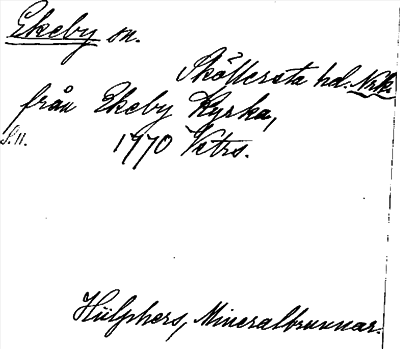 Ekeby sn.
Sköllersta hd. Nrk.
från Ekeby Kyrka,
S. 11. 1770 Vtrs.
Hülphers, Mineralbrunnar.